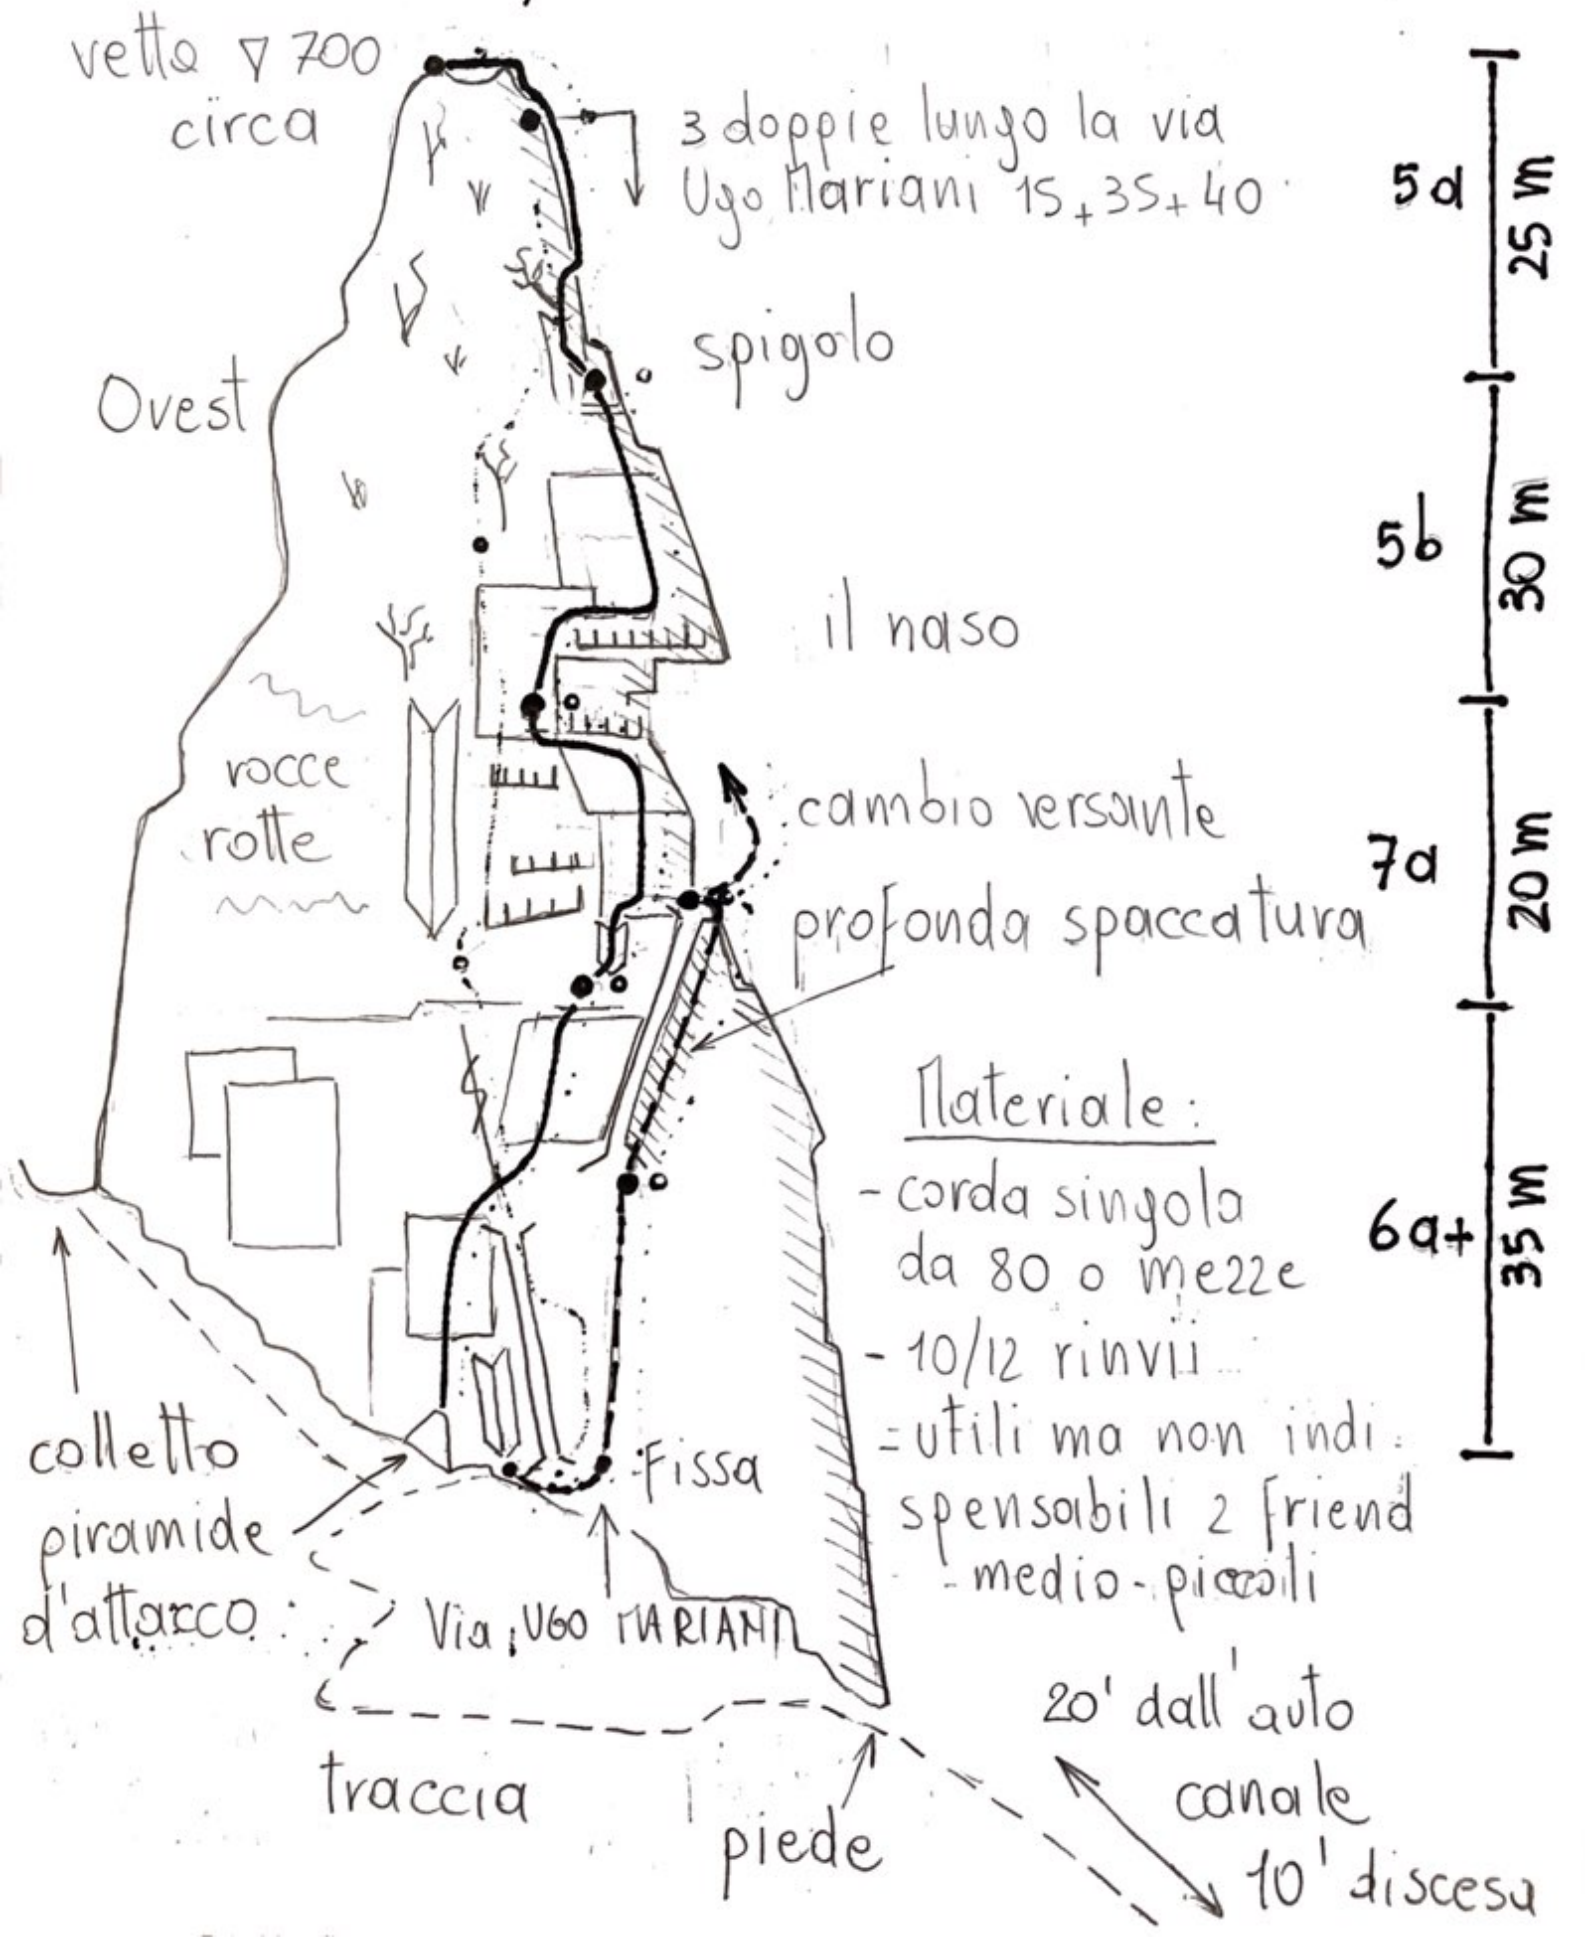 vetta ▽ 700
circa
3 doppie lungo la via
Ugo Mariani 15+35+40
5a
25 m
spigolo
Ovest
5b
30 m
il naso
rocce
rotte
cambio versante
7a
20 m
profonda spaccatura
Materiale:
- corda singola
da 80 o mezze
6a+
35 m
- 10/12 rinvii
- utili ma non indi
spensabili 2 friend
medio-piccoli
colletto
piramide
d'attacco
Fissa
Via UGO MARIANI
20' dall'auto
traccia
canale
piede
10' discesa